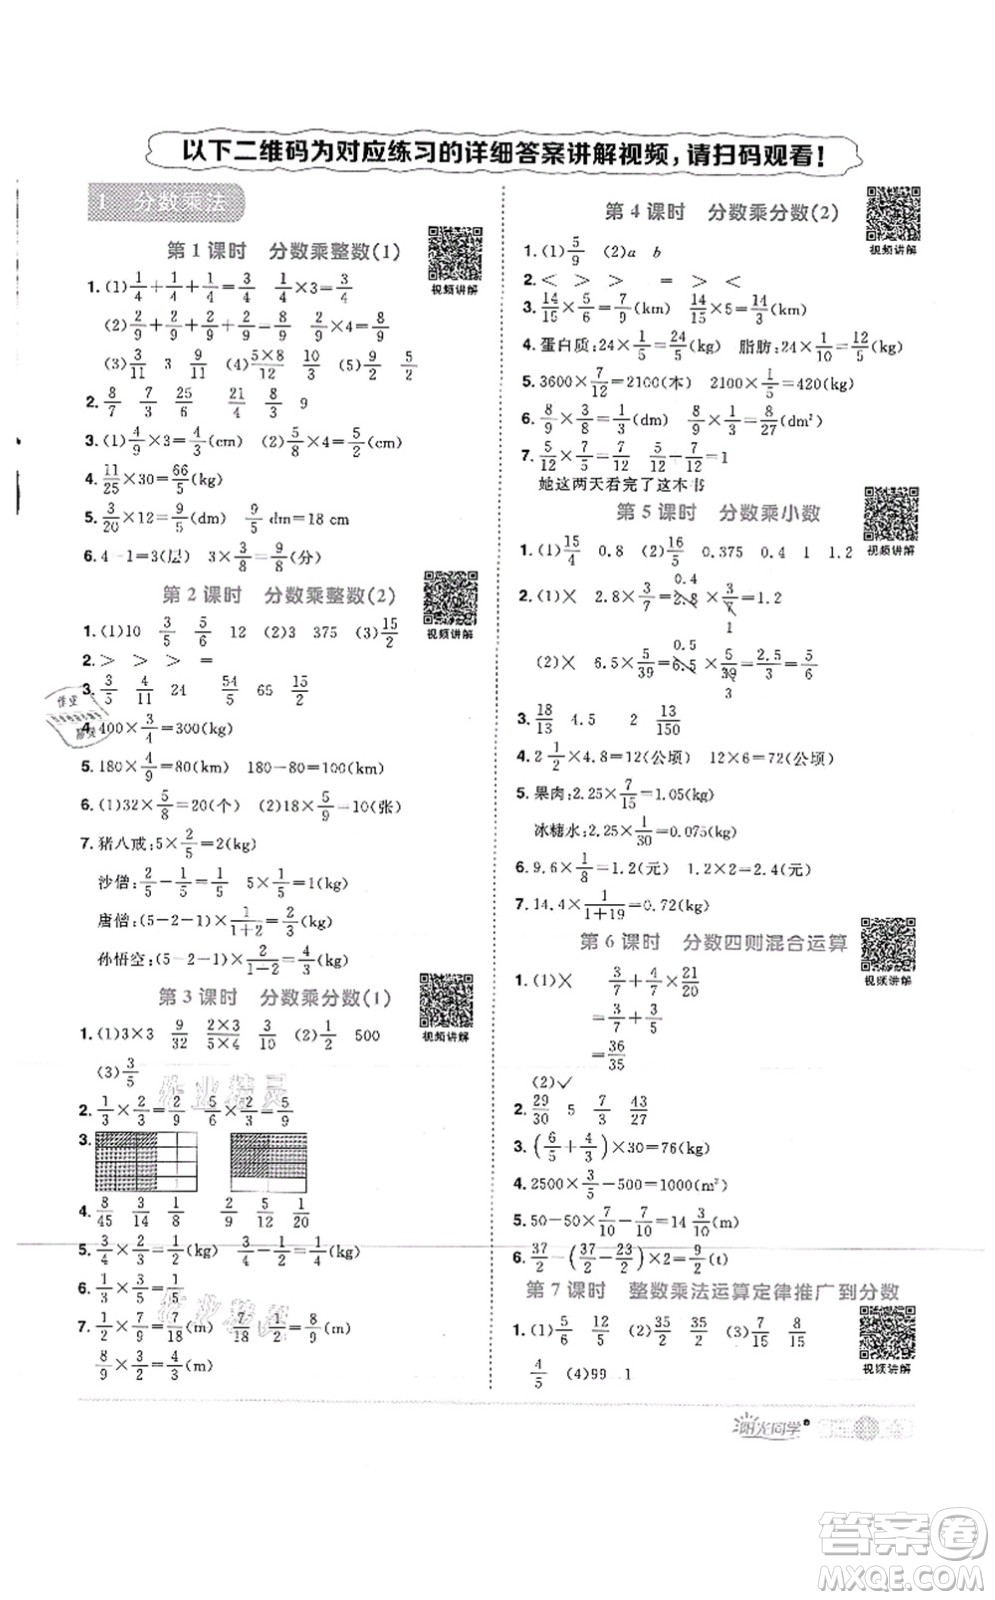 以下二维码为对应练习的详细答案讲解视频,请扫码观看!
1 分数乘法
第1课时 分数乘整数(1)
视频讲解
1.(1)1/4+1/4+1/4=3/4 1/4×3=3/4
(2)2/9+2/9+2/9+2/9=8/9 2/9×4=8/9
(3)3/11 3 9/11 (4)5×8/12 10/3 (5)2/9 2/3
2.8/7 3/4 25/6 21/4 8/3 9
3.(1)4/9×3=4/3(cm) (2)5/8×4=5/2(cm)
4.11/25×30=66/5(kg)
5.3/20×12=9/5(dm) 9/5dm=18 cm
6.4-1=3(层) 3×3/8=9/8(分)
第2课时 分数乘整数(2)
视频讲解
1.(1)10 3/5 5/6 12 (2)3 375 (3)15/2
2.> > > =
3.3/5 4/11 24 54/5 65 15/2
4.400×3/4=300(kg)
5.180×4/9=80(km) 180-80=100(km)
6.(1)32×5/8=20(个) (2)18×5/9=10(张)
7.猪八戒:5×2/5=2(kg)
沙僧:2/5-1/5=1/5 5×1/5=1(kg)
唐僧:(5-2-1)×1/1+2=2/3(kg)
孙悟空:(5-2-1)×2/1+2=4/3(kg)
第3课时 分数乘分数(1)
视频讲解
1.(1)3×3 9/32 2×3/5×4 3/10 (2)1/2 500
(3)3/5
2.1/3×2/3=2/9 5/6×2/3=5/9
3.
4.8/45 3/14 1/8 2/9 5/12 1/20
5.3/4×2/3=1/2(kg) 3/4-1/2=1/4(kg)
6.1/3×3/5=1/5
7.1/2×7/9=7/18(m) 7/18+1/2=8/9(m)
8/9×3/4=2/3(m)
第4课时 分数乘分数(2)
视频讲解
1.(1)5/9 (2)a b
2.< > > = > <
3.14/15×5/6=7/9(km) 14/15×5=14/3(km)
4.蛋白质:24×1/5=24/5(kg) 脂肪:24×1/10=12/5(kg)
5.3600×7/12=2100(本) 2100×1/5=420(kg)
6.8/9×3/8=1/3(dm) 8/9×1/3=8/27(dm²)
7.5/12×7/5=7/12 5/12+7/12=1
她这两天看完了这本书
第5课时 分数乘小数
视频讲解
1.(1)15/4 0.8 (2)16/5 0.375 0.4 1 1.2
2.(1)× 2.8×3/7=2.8(0.4)×3/7(1)=1.2
(2)× 6.5×5/39=6.5(0.5)×5/39(3)=2.5/3=5/6
3.18/13 4.5 2 13/150
4.2 1/2×4.8=12(公顷) 12×6=72(公顷)
5.果肉:2.25×7/15=1.05(kg)
冰糖水:2.25×1/30=0.075(kg)
6.9.6×1/8=1.2(元) 1.2×2=2.4(元)
7.14.4×1/1+19=0.72(kg)
第6课时 分数四则混合运算
视频讲解
1.(1)× 3/7+4/7×21/20
=3/7+3/5
=36/35
(2)✓
2.29/30 5 7/3 43/27
3.(6/5+4/3)×30=76(kg)
4.2500×3/5-500=1000(m²)
5.50-50×7/10-7/10=14 3/10(m)
6.37/2-(37/2-23/2)×2=9/2(t)
第7课时 整数乘法运算定律推广到分数
视频讲解
1.(1)5/6 12/5 (2)35/2 35/2 (3)7/15 8/15
4/5 (4)99 1
阳光同学
作业精灵
答案卷
MXQE.COM